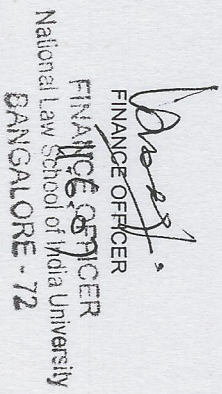 FINANCE OFFICER
FINANCE OFFICER
National Law School of India University
BANGALORE - 72